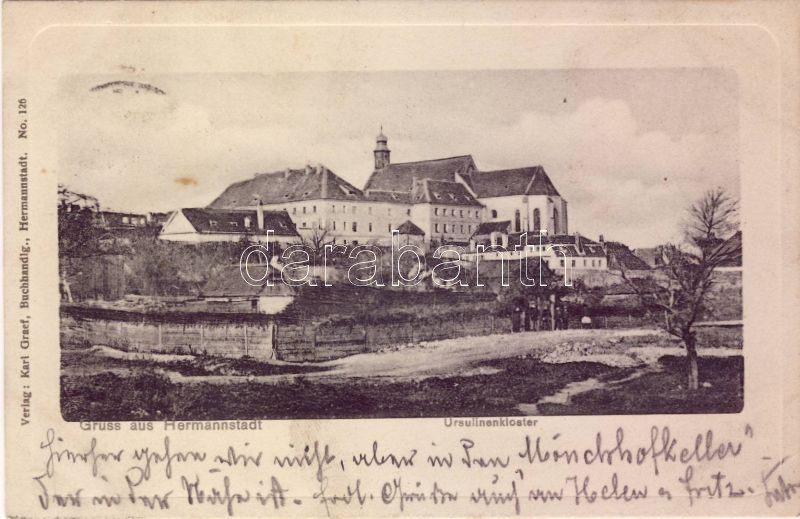 Verlag: Karl Graef, Buchhandlg., Hermannstadt. No. 126
darabanth
Gruss aus Hermannstadt
Ursulinenkloster
hierher gehen wir nicht, aber in den Mönchhofkeller"
der in der Nähe ist. Frdl. Grüße auch an Helen u Fritz.